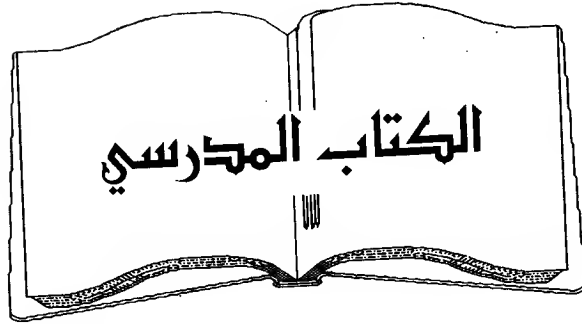 الكتاب المدرسي